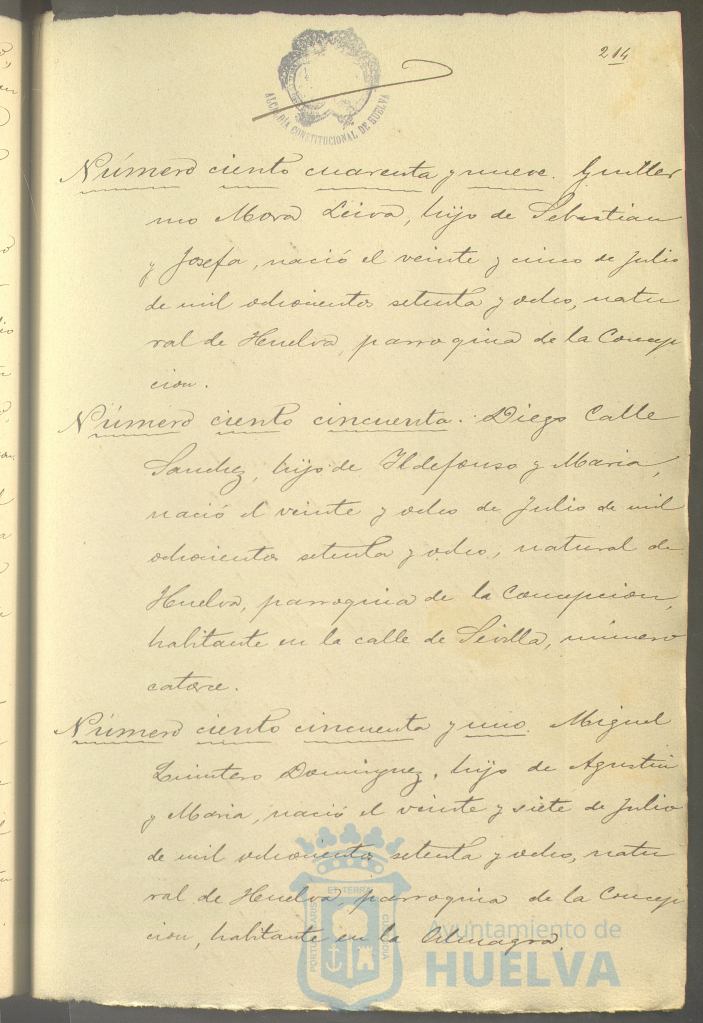 214
ALCALDIA CONSTITUCIONAL DE HUELVA
Número ciento cuarenta y nueve. Guiller
mo Mora Leiva, hijo de Sebastian
y Josefa, nació el veinte y cinco de Julio
de mil ochocientos setenta y ocho, natu
ral de Huelva, parroquia de la Concep
cion.
Número ciento cincuenta. Diego Calle
Sanchez, hijo de Ildefonso y Maria,
nació el veinte y ocho de Julio de mil
ochocientos setenta y ocho, natural de
Huelva, parroquia de la Concepcion,
habitante en la calle de Sevilla, número
catorce.
Número ciento cincuenta y uno. Miguel
Quintero Dominguez, hijo de Agustin
y Maria, nació el veinte y siete de Julio
de mil ochocientos setenta y ocho, natu
ral de Huelva, parroquia de la Concep
cion, habitante en la Almagra.
PORTUS MARIS ET TERRÆ CUSTODIA
Ayuntamiento de
HUELVA